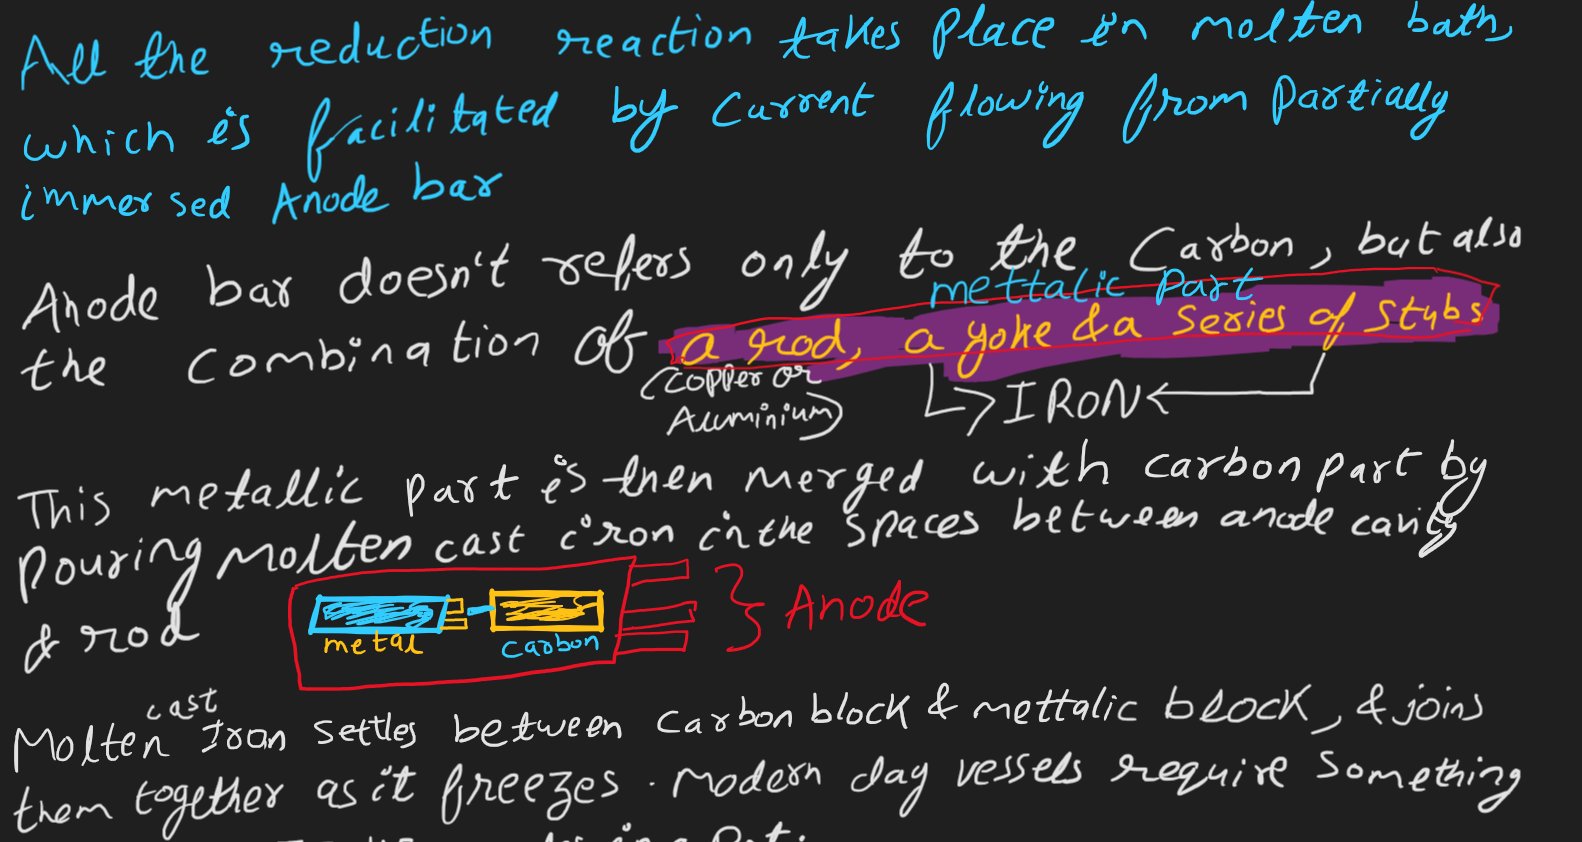 All the reduction reaction takes place in molten bath,
which is facilitated by current flowing from partially
immersed Anode bar
Anode bar doesn't refers only to the Carbon, but also
mettalic part
the combination of a rod, a yoke & a series of stubs
(copper or
Aluminium)
IRON
This metallic part is then merged with carbon part by
pouring molten cast iron in the spaces between anode cavity
& rod
metal
carbon
Anode
cast
Molten Iron settles between carbon block & mettalic block, & joins
them together as it freezes. Modern day vessels require something